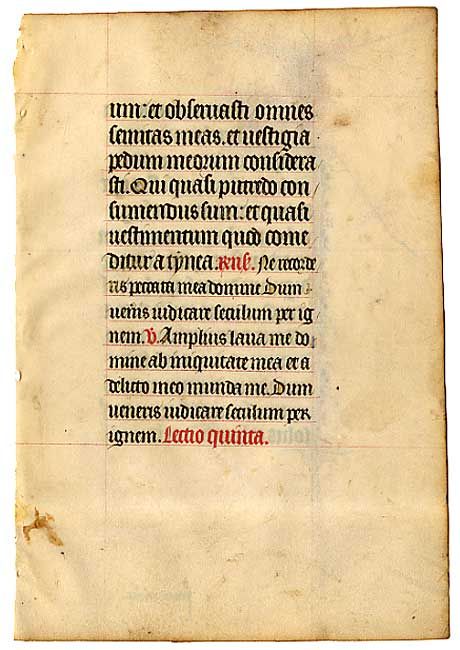 um: et obseruasti omnes
semitas meas. et uestigia
pedum meorum considera
sti. Qui quasi putredo con
sumendus sum: et quasi
uestimentum quod come
ditur a tynea. Rus. Ne recorde
ris peccata mea domine Dum
ueneris iudicare seculum per ig
nem. V. Amplius laua me do
mine ab iniquitate mea et a
delicto meo munda me. Dum
ueneris iudicare seculum per
ignem. Lectio quinta.